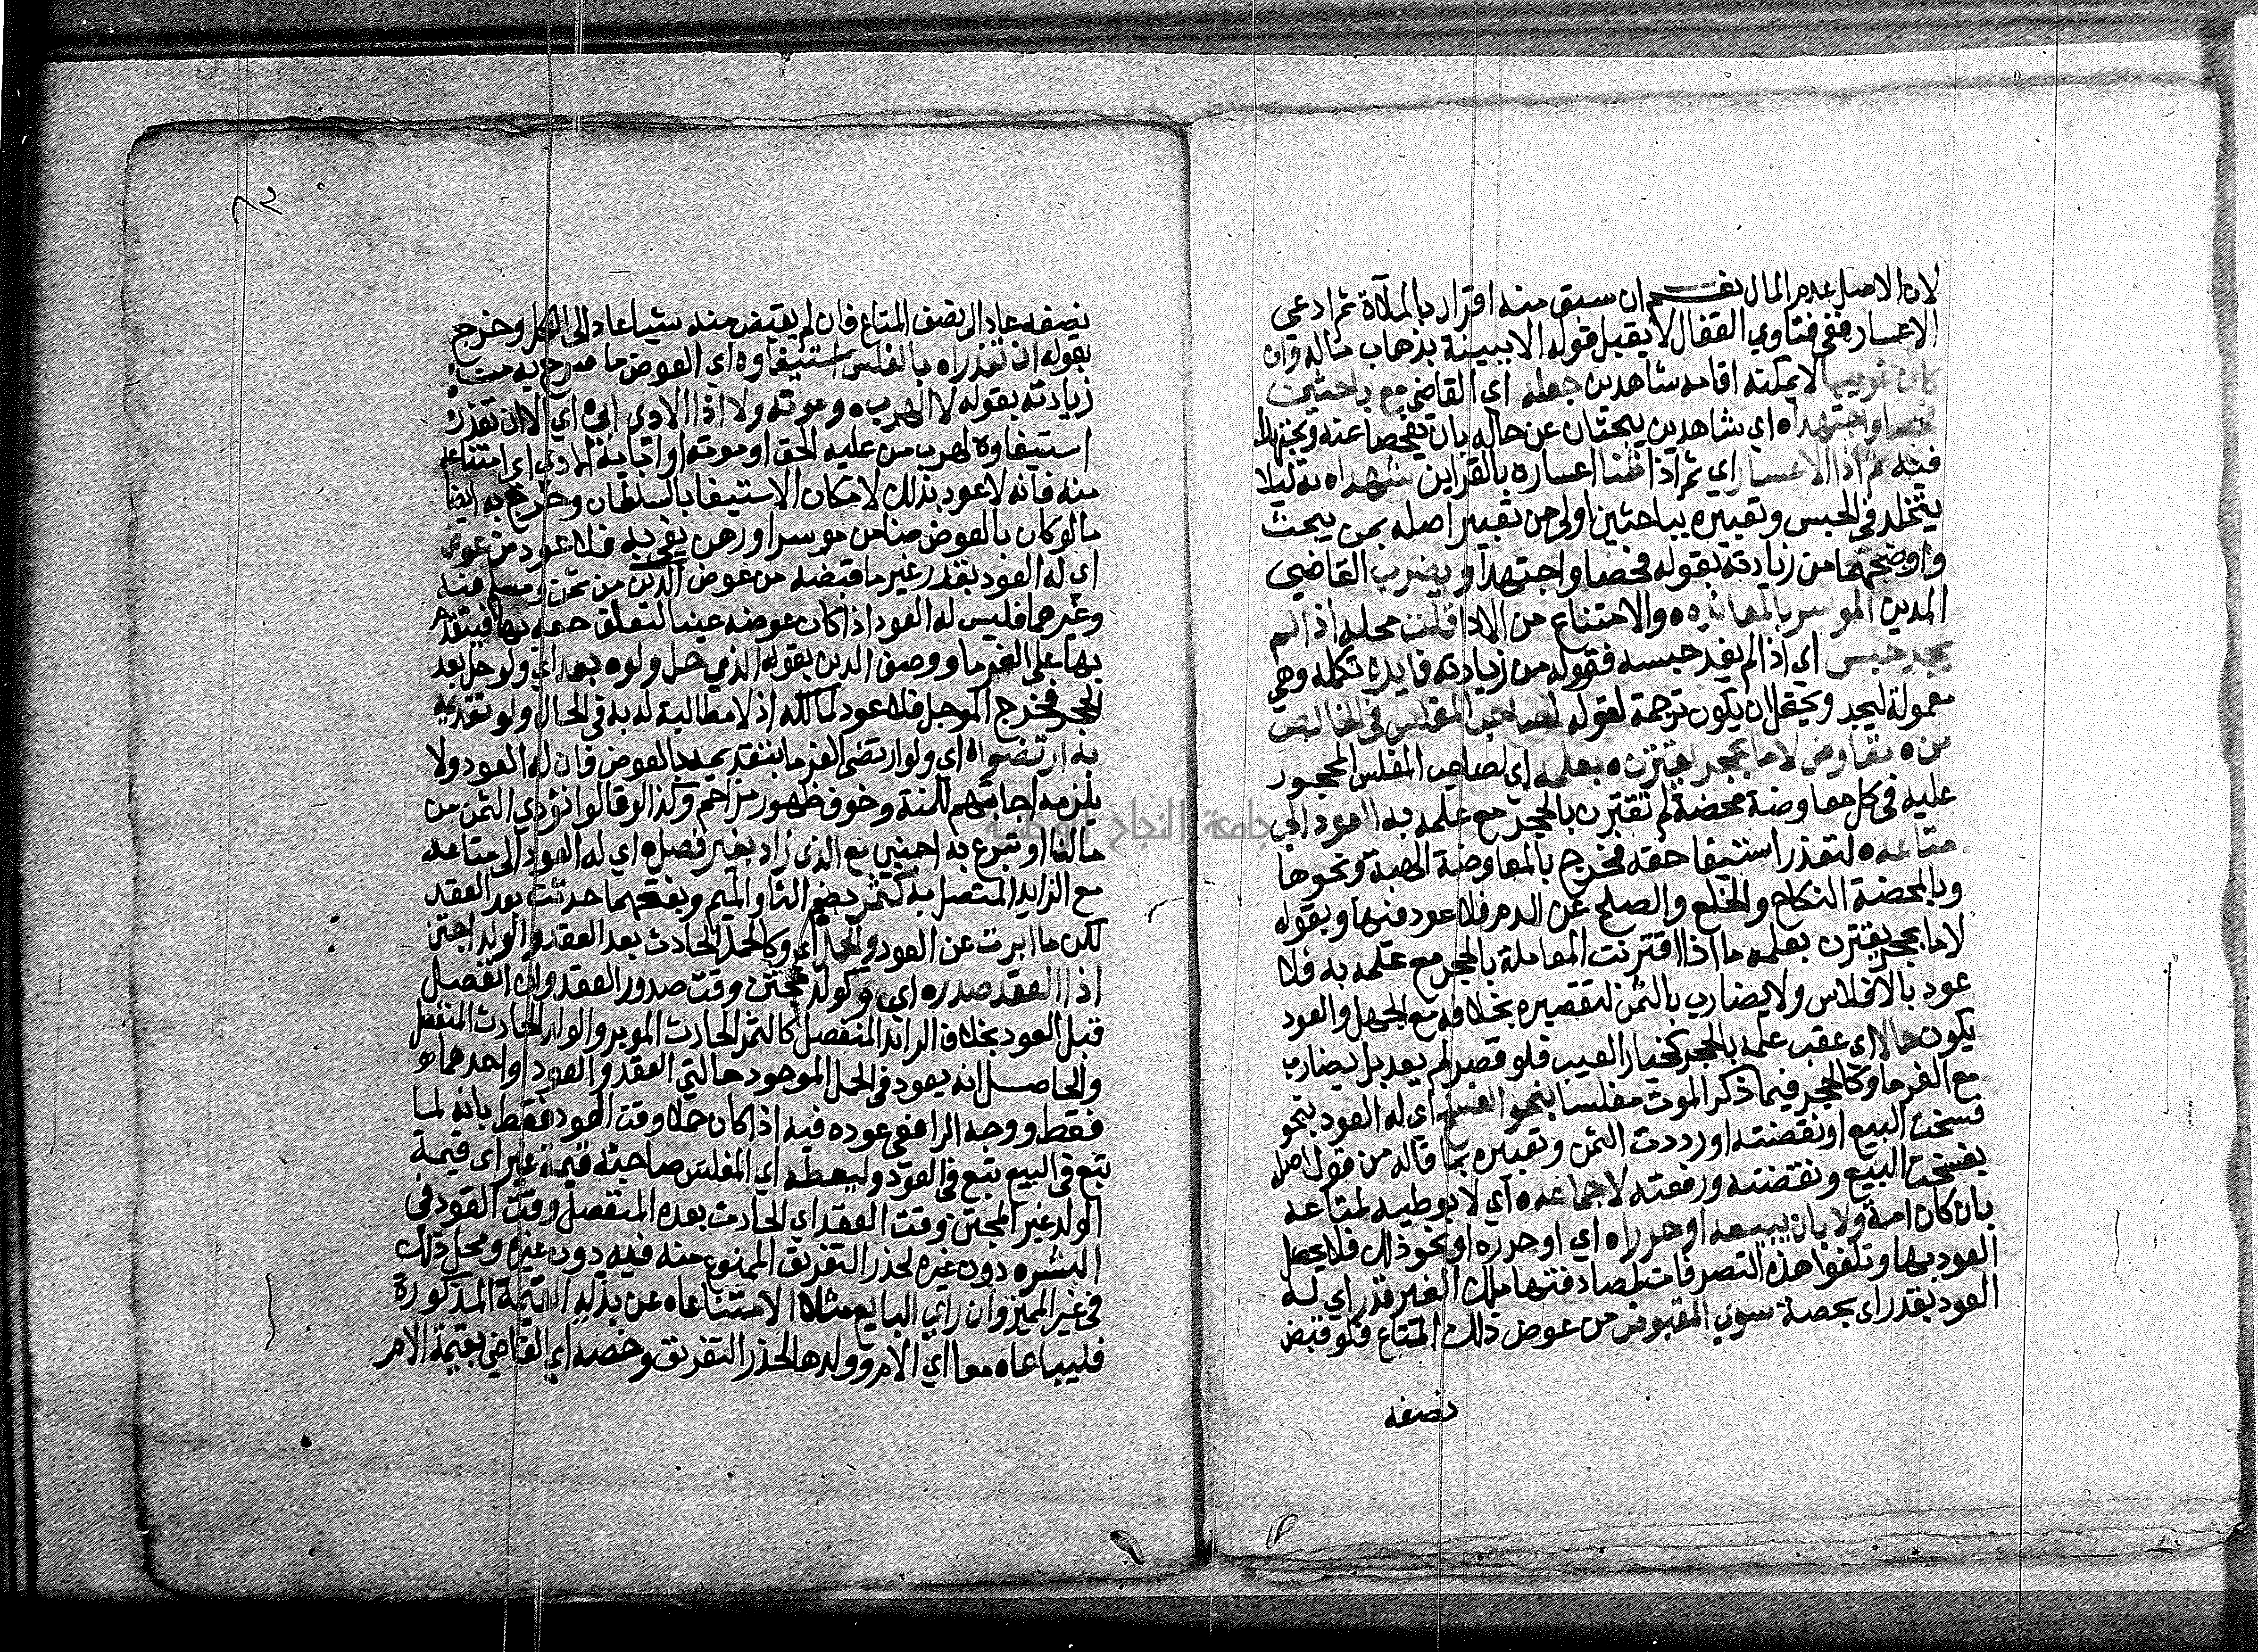 لان الاصل عدم المال نعم ان سبق منه اقرار بالملاة ثم ادعى
الاعسار ففى فتاوي القفال لا يقبل قوله الا ببينة بذهاب ماله وان
كان غريبا لا يمكنه اقامه شاهدين جعله اي القاضي مع باحثين
واجتهدا ه اي شاهدين يبحثان عن حاله بان يفحصا عنه ويجتهدا
فيه ثم اذا الاعسار اي ثم اذا ظنا اعساره بالقراين شهدا ه به ليلا
يتخلد في الحبس وتعبيره بباحثين اولى من تعبير اصله بمن يبحث
واوضحتها من زيادته بقوله فحصا واجتهدا ويضرب القاضي
المدين الموسر بالمعاندة ه والامتناع من الادا قلت محله اذا لم
يجد حبس اي اذا لم يفد حبسه فقوله من زيادته فايدة تكمله وهي
معمولة ليجد ويحتمل ان يكون ترجمة لقوله لصاحب المفلس في الخالص
من ه تعاوض لا ما بحجر اقترن ه بعلمه اي لصاحب المفلس المحجور
عليه فى كل معاوضة محضة لم تقترن بالحجر مع علمه به العود الى
متاعه ه لتعذر استيفا حقه فخرج بالمعاوضة الهبة ونحوها
وبالمحضة النكاح والخلع والصلح عن الدم فلا عود فيها وبقوله
لا ما بحجر يقترن بعلمه ما اذا اقترنت المعاملة بالحجر مع علمه به فلا
عود بالافلاس ولا يضارب بالثمن لتقصيره بخلافه مع الجهل والعود
يكون حالا اي عقب علمه بالحجر كخيار العيب فلو قصر لم يعد بل يضارب
مع الغرما وكالحجر فيما ذكر الموت مفلسا بنحو الفسخ اي له العود بنحو
فسخت البيع او نقضته او رددت الثمن وتعبيره بما قاله من قول اصله
بفسخت البيع ونقضته ورفعته لا جماعه ه اي لا بوطيه لمتاعه
بان كان امة ولا بان يبيعه او حرراه اي او حرره او نحو ذلك فلا يحصل
العود بها وتلغوا هذه التصرفات لمصادفتها ملك الغير قدر اي له
العود بقدر اى بحصة سوي المقبوض من عوض ذلك المتاع فلو قبض
نصفه
نصفه عاد الى نصف المتاع فان لم يقبض منه شيا عاد الى الكل وخرج
بقوله ان تعذرا ه بالفلس استيفاوه اي العوض ما صرح به من
زيادته بقوله لا الهرب ه وموته ولا اذا الادى ابي اي لا ان تعذر
استيفاوه لهرب من عليه الحق او موته او ابايه اي امتناعه
منه فانه لا عود بذلك لامكان الاستيفا بالسلطان وخرج به ايضا
مالو كان بالعوض ضامن موسر او رهن يفي به فلا عود من عوض
اى له العود بقدر غير ما قبضه من عوض الدين من ثمن ومسلم فيه
وغيرهما فليس له العود اذا كان عوضه عينا لتعلق حقه بها فيقدم
بها على الغرما ووصف الدين بقوله الذي حل ولو ه بعد اي ولو حل بعد
الحجر فخرج الموجل فلا عود لمالكه اذ لا مطالبة له به فى الحال ولو تقديمه
به ارتضوا ه اى ولو ارتضى الغرما بتقديمه بالعوض فان له العود ولا
يلزمه اجابتهم للمنة وخوف ظهور مزاحم وكذا لو قالوا نؤدي الثمن من
مالنا او تبرع به اجنبي مع الذي زاد بغير فصل ه اي له العود الى متاعه
مع الزايد المتصل به كثمر بضم الثا والميم وبفتحهما حدثت بعد العقد
لكن ما ابرت عن العود والحمل اي وكالحمل الحادث بعد العقد والولد اجتن
اذا العقد صدره اي وكولد مجتن وقت صدور العقد وان انفصل
قبل العود بخلاف الزايد المنفصل كالثمر الحادث الموبر والولد الحادث المنفصل
والحاصل انه يعود فى الحمل الموجود حالتي العقد والعود او احدهما ه
فقط ووجه الرافعى عوده فيه اذا كان حملا وقت العود فقط بانه لما
تبع فى البيع تبع فى العود وليعطه اي المفلس صاحبه قيمة غير اى قيمة
الولد غير المجتن وقت العقد اي الحادث بعده المنفصل وقت العود فى
البشر ه دون غيره لحذر التفريق الممنوع منه فيه دون غيره ومحل ذلك
فى غير المميز وان راي البايع مثلا الامتناعا ه عن بذله القيمة المذكورة
فليباعا ه معا اي الام وولدها لحذر التفريق وخصه اي القاضي بقيمة الام
جامعة النجاح الوطنية